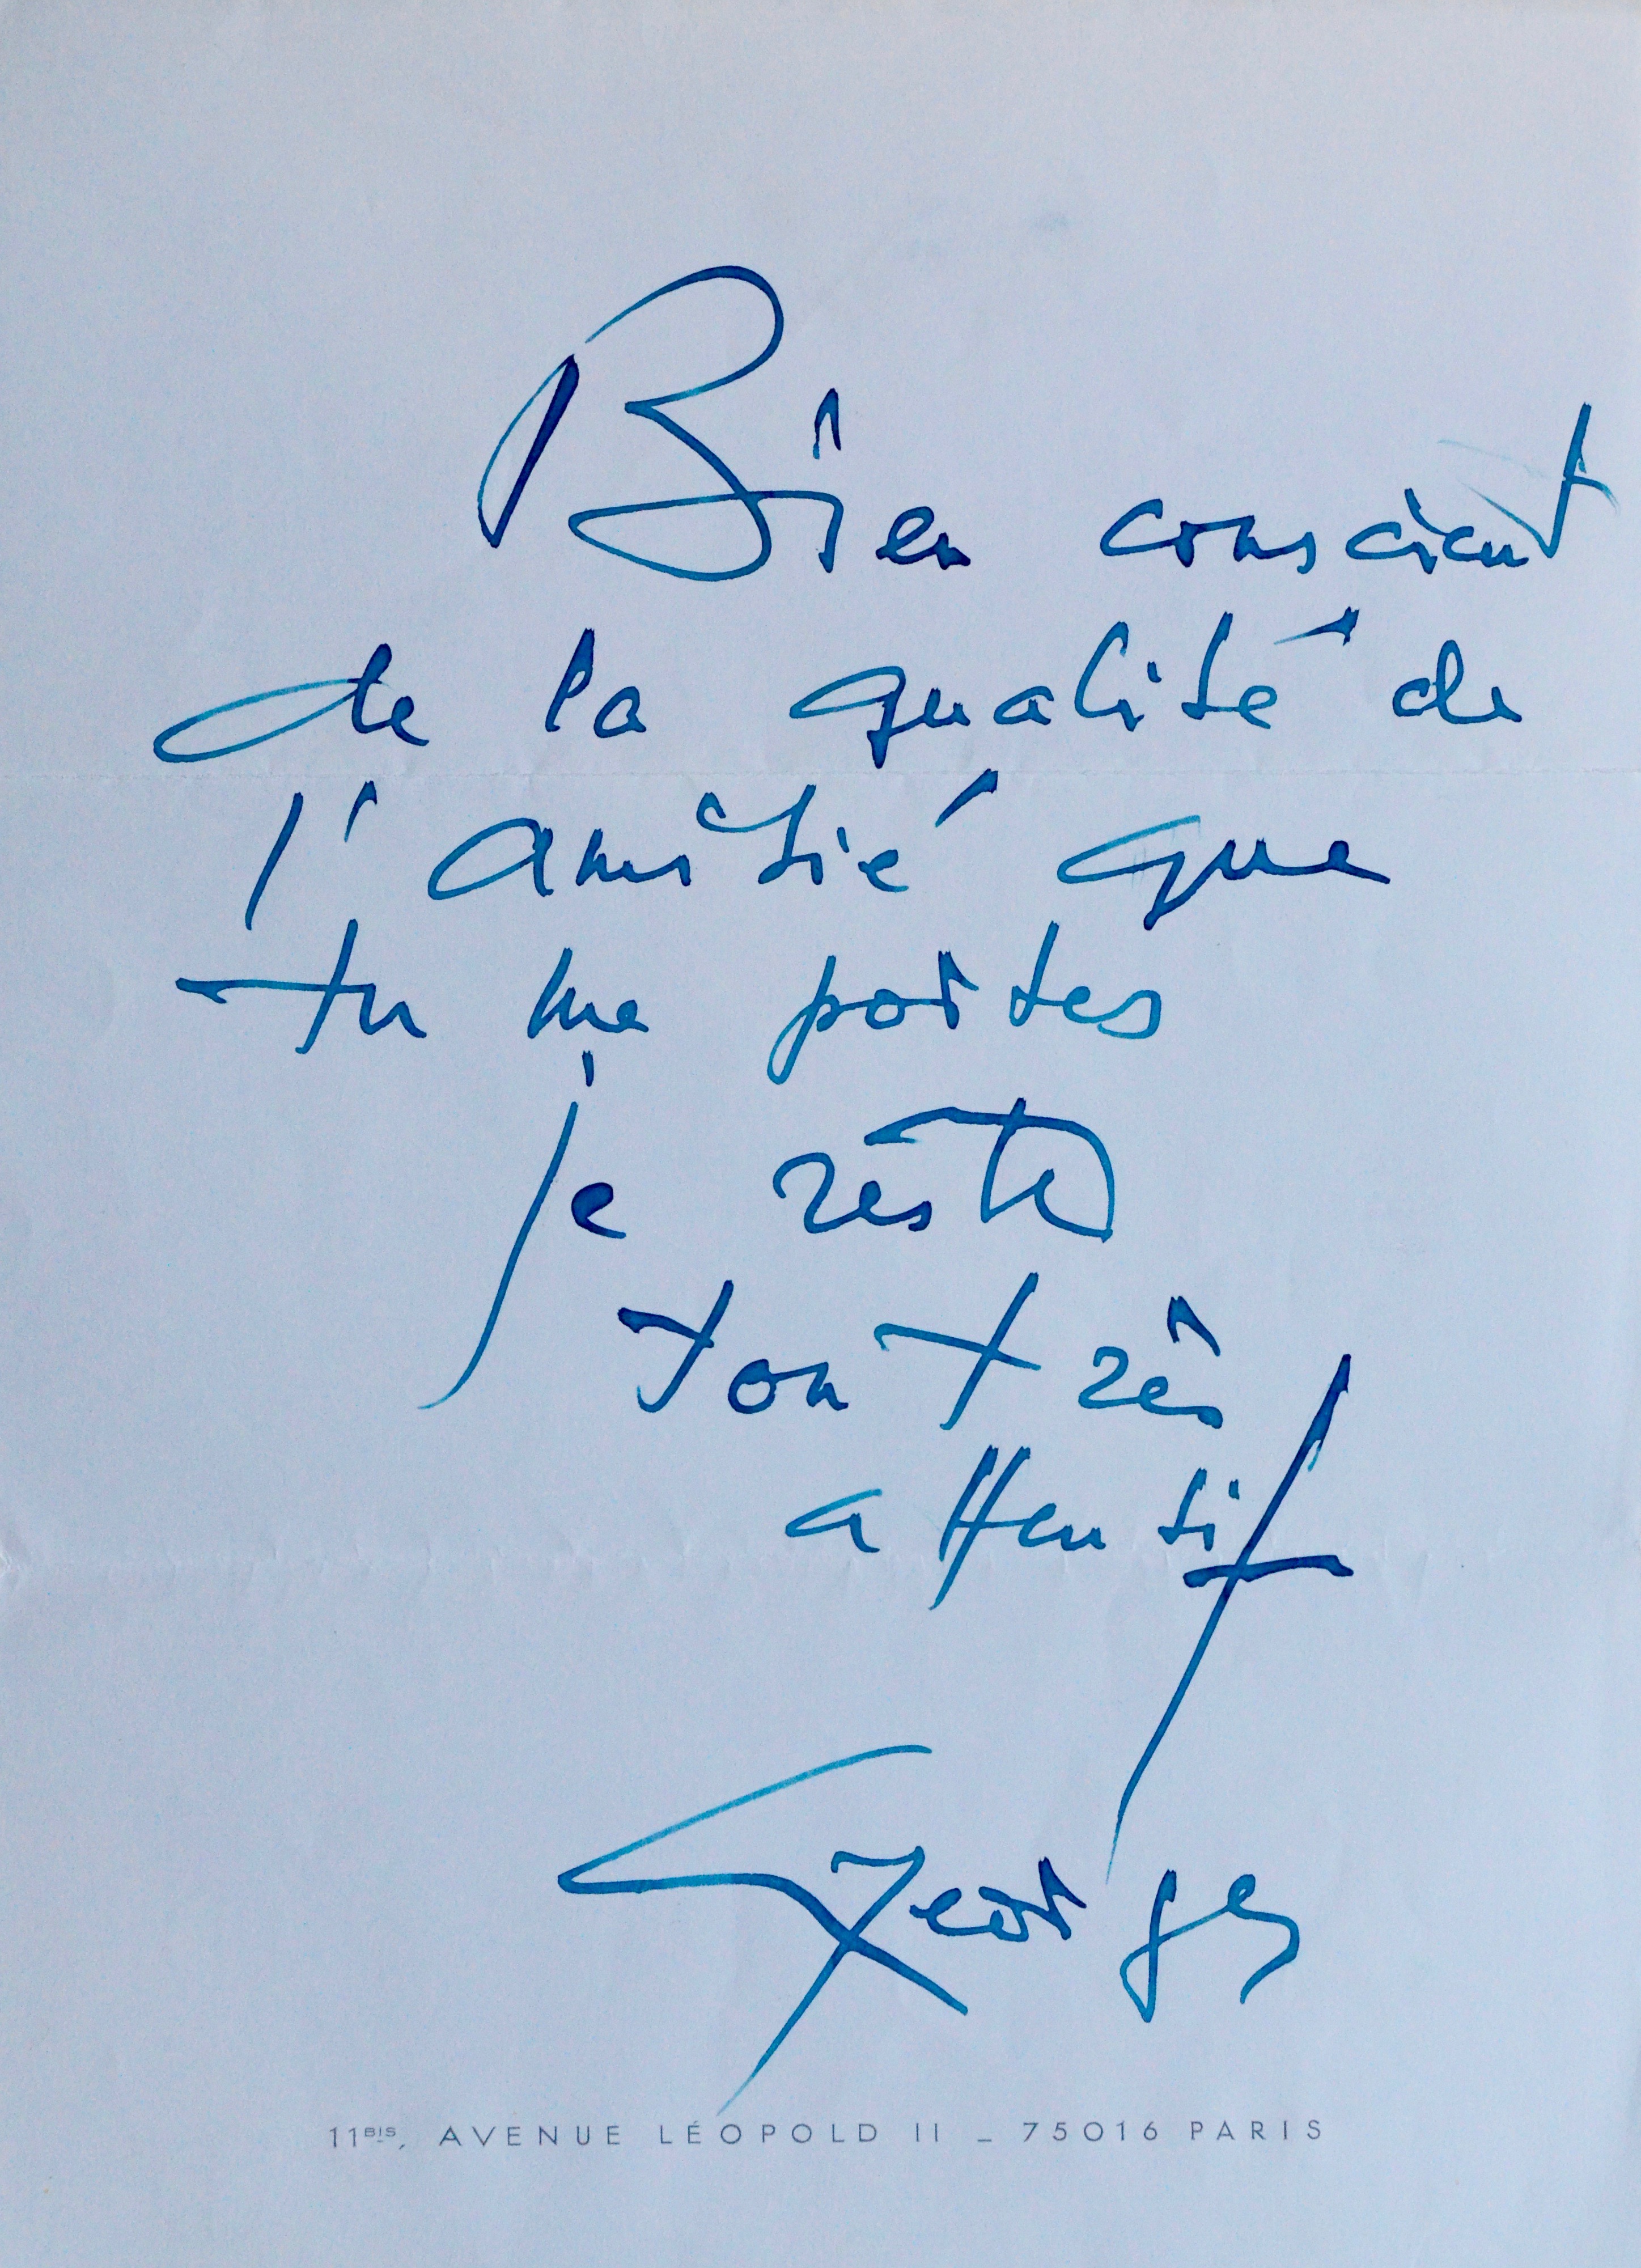 Bien conscient
de la qualité de
l'amitié que
tu me portes
je reste
ton très
attentif
Georges
11BIS, AVENUE LÉOPOLD II _ 75016 PARIS